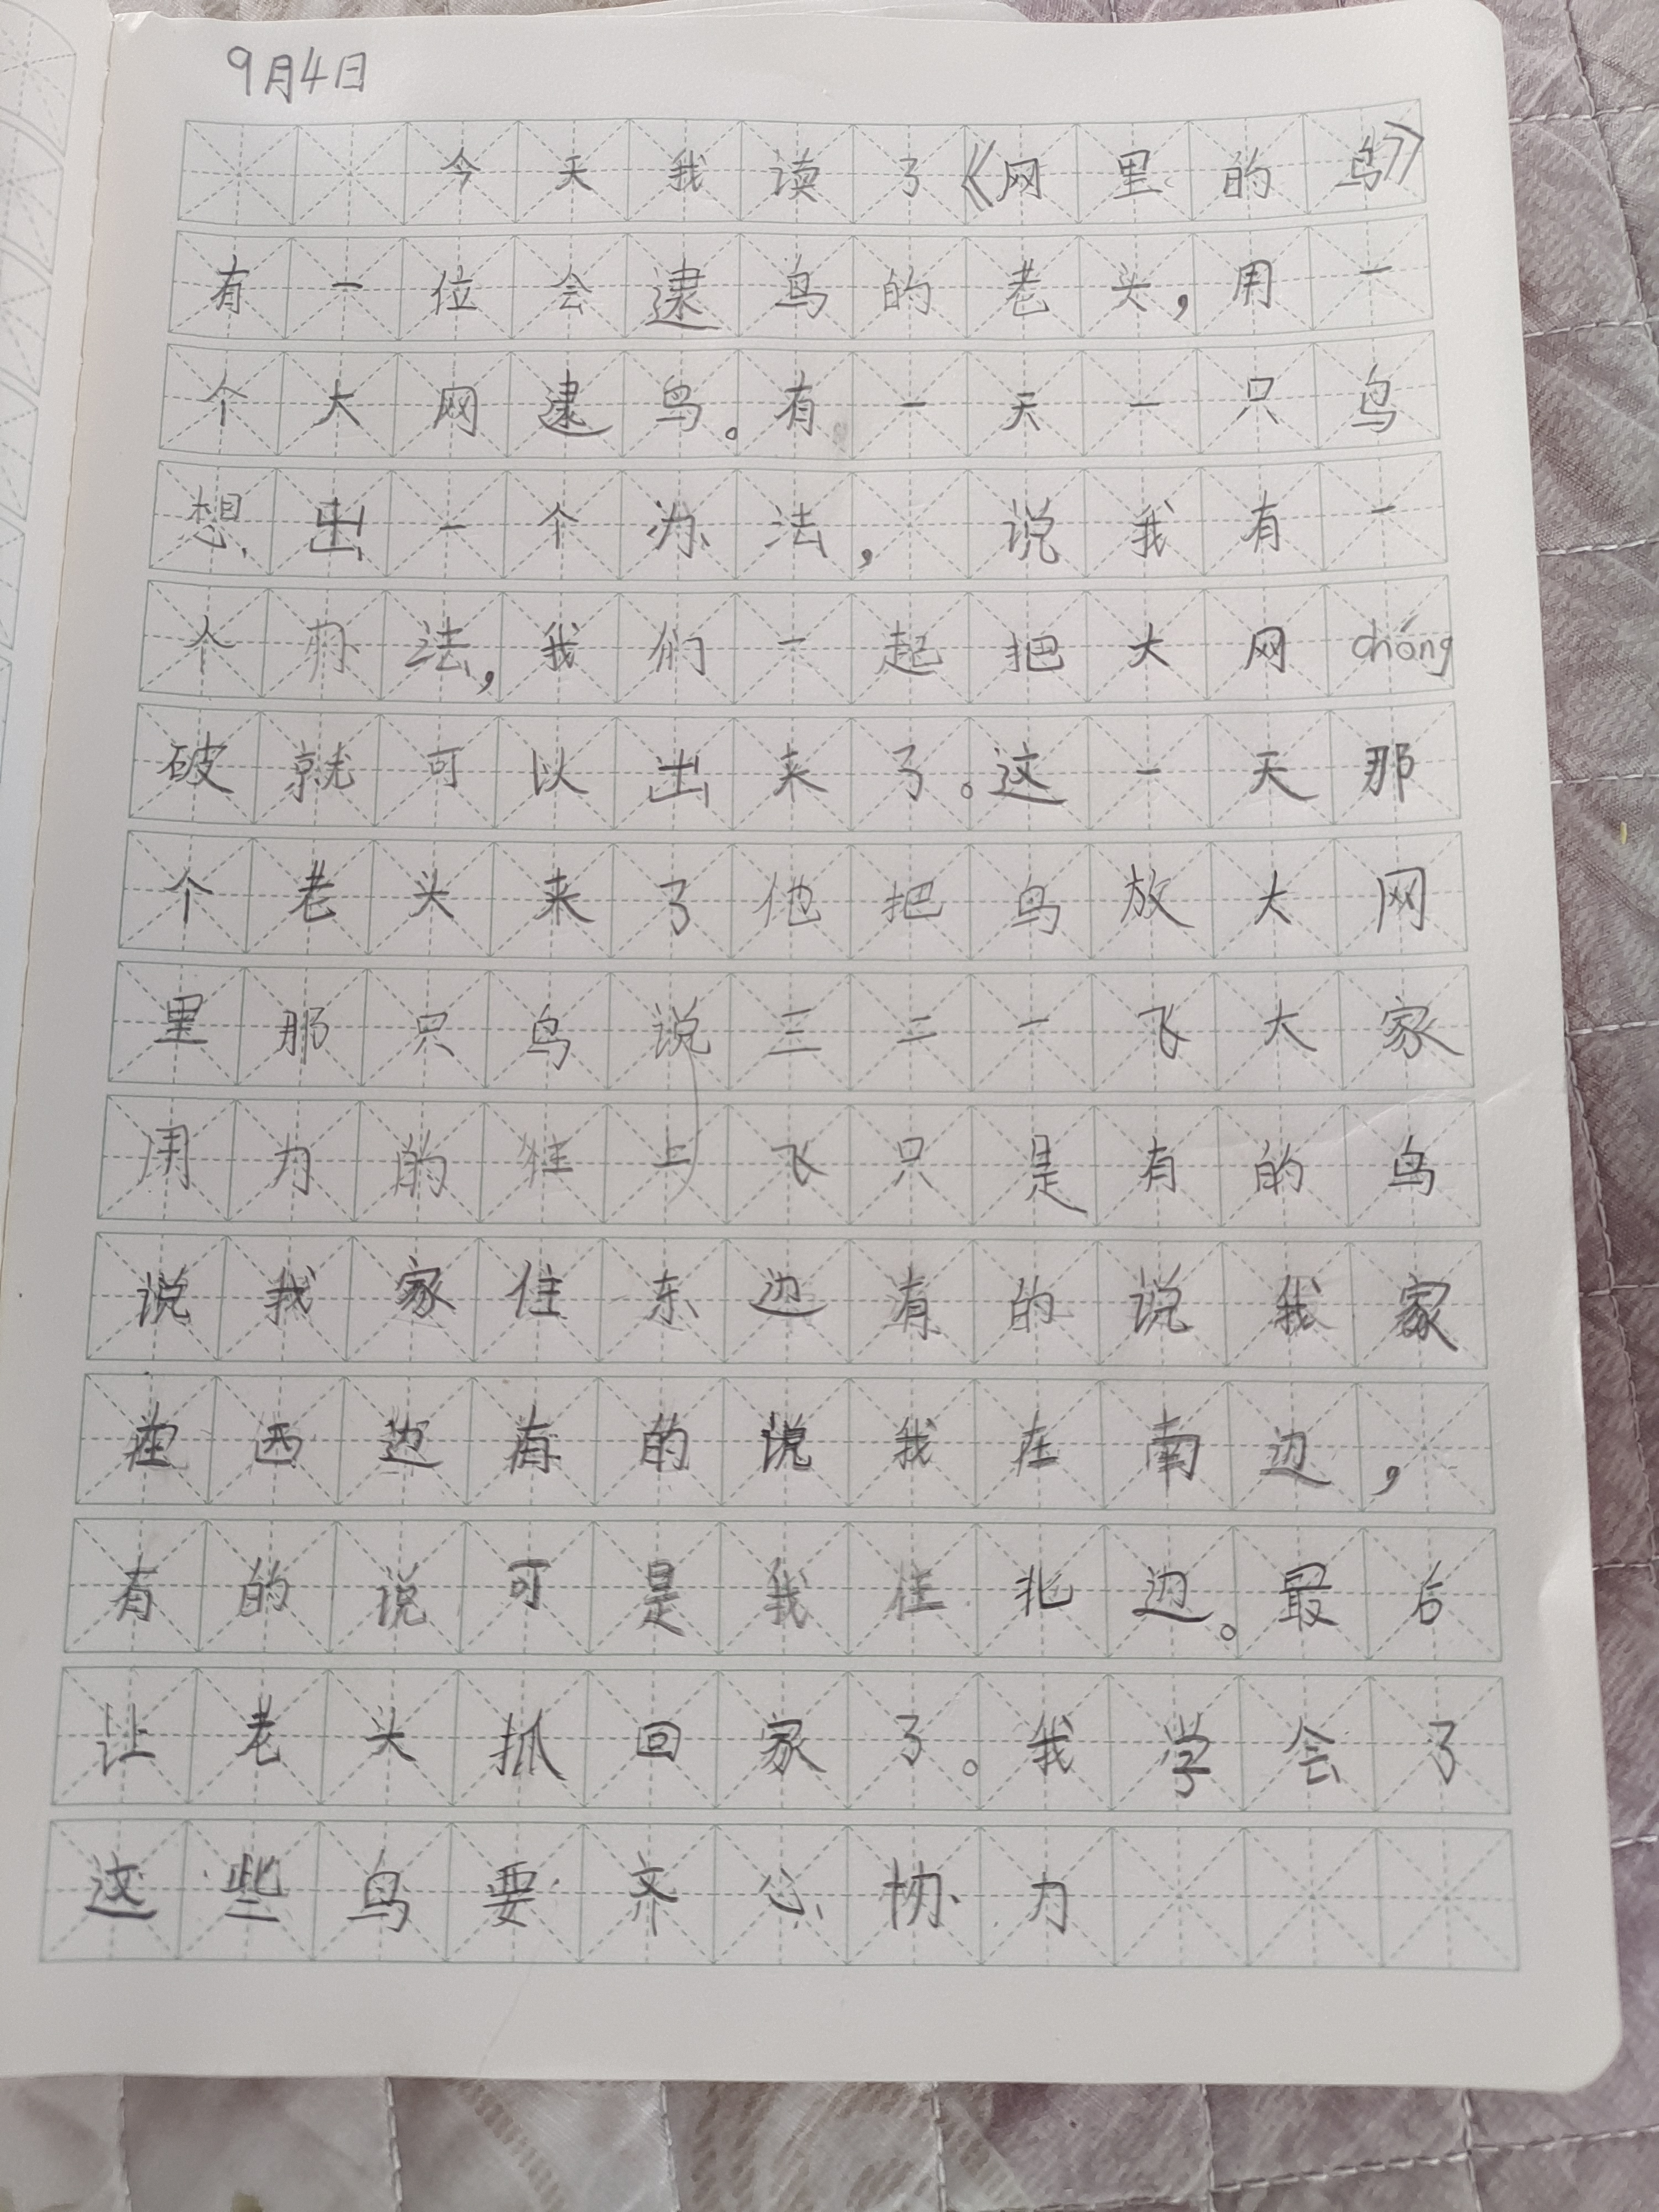 9月4日
今天我读了《网里的鸟》
有一位会逮鸟的老头，用一
个大网逮鸟。有一天一只鸟
想出一个办法，说我有一
个办法，我们一起把大网chóng
破就可以出来了。这一天那
个老头来了他把鸟放大网
里那只鸟说三二一飞大家
用力的往上飞只是有的鸟
说我家住东边有的说我家
在西边有的说我在南边，
有的说可是我住北边。最后
让老头抓回家了。我学会了
这些鸟要齐心协力